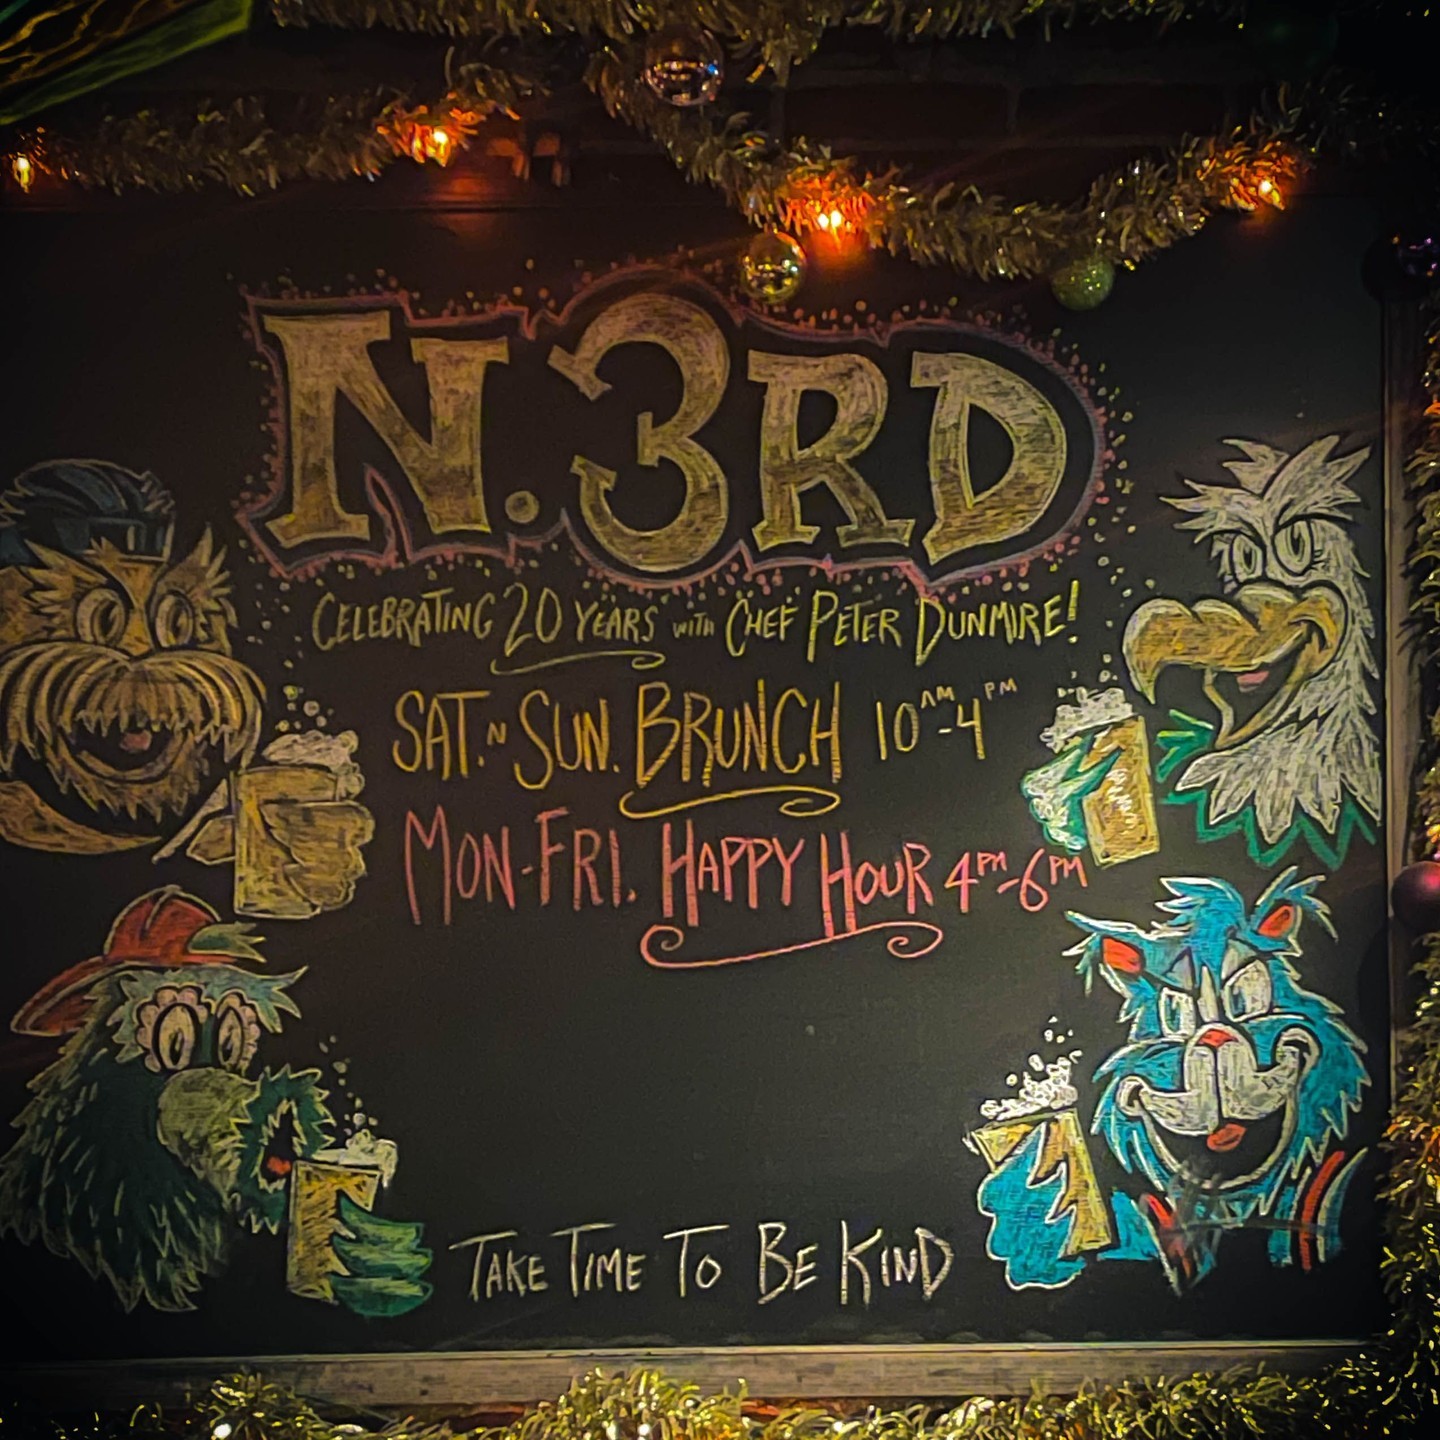 N.3RD
CELEBRATING 20 YEARS WITH CHEF PETER DUNMIRE!
SAT. N SUN. BRUNCH 10AM-4PM
MON-FRI. HAPPY HOUR 4PM-6PM
TAKE TIME TO BE KIND